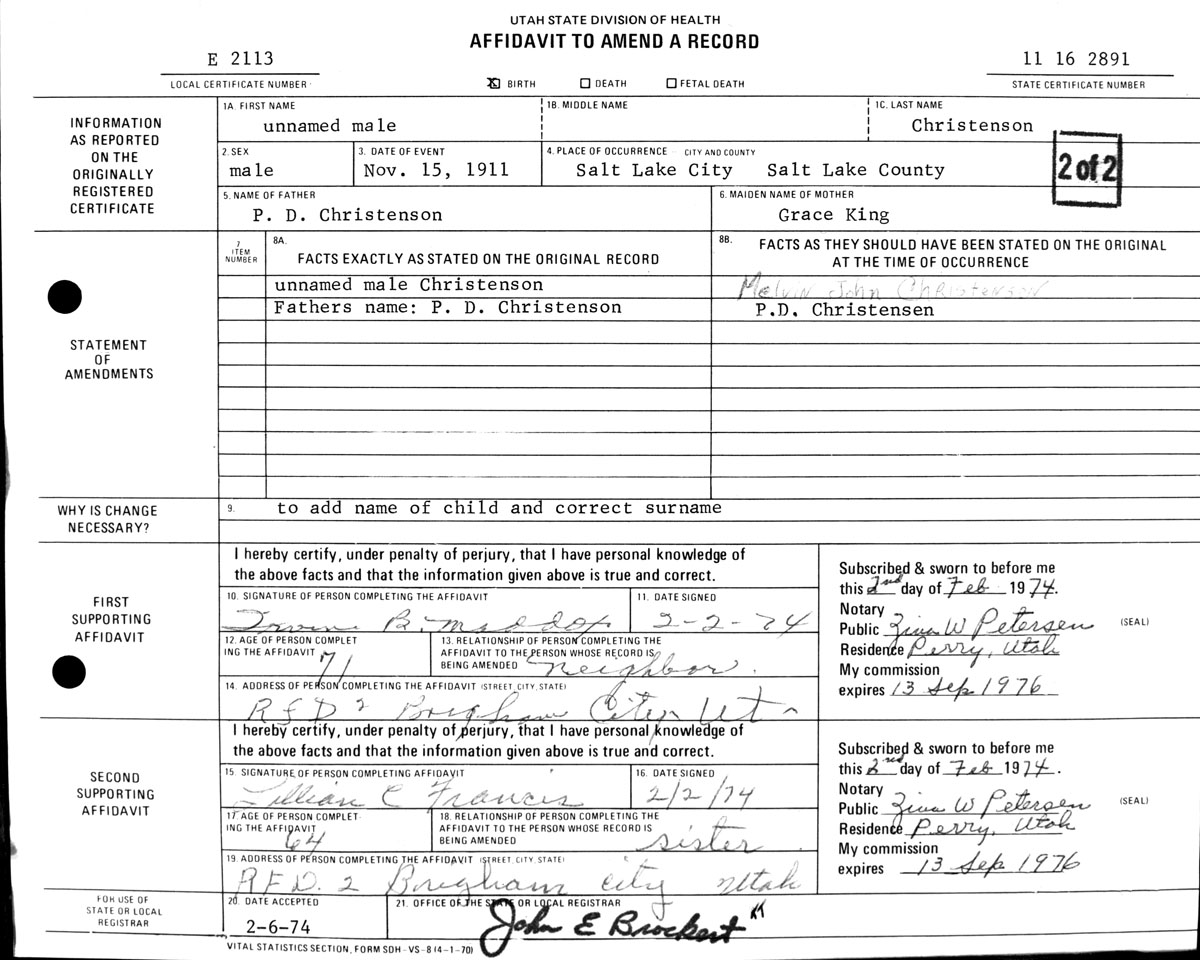 UTAH STATE DIVISION OF HEALTH
AFFIDAVIT TO AMEND A RECORD
E 2113
LOCAL CERTIFICATE NUMBER
☒ BIRTH ☐ DEATH ☐ FETAL DEATH
11 16 2891
STATE CERTIFICATE NUMBER
INFORMATION
AS REPORTED
ON THE
ORIGINALLY
REGISTERED
CERTIFICATE
1A. FIRST NAME
unnamed male
1B. MIDDLE NAME
1C. LAST NAME
Christenson
2. SEX
male
3. DATE OF EVENT
Nov. 15, 1911
4. PLACE OF OCCURRENCE - CITY AND COUNTY
Salt Lake City Salt Lake County
2 of 2
5. NAME OF FATHER
P. D. Christenson
6. MAIDEN NAME OF MOTHER
Grace King
STATEMENT
OF
AMENDMENTS
7
ITEM
NUMBER
8A.
FACTS EXACTLY AS STATED ON THE ORIGINAL RECORD
8B. FACTS AS THEY SHOULD HAVE BEEN STATED ON THE ORIGINAL
AT THE TIME OF OCCURRENCE
unnamed male Christenson
Melvin John Christenson
Fathers name: P. D. Christenson
P.D. Christensen
WHY IS CHANGE
NECESSARY?
9. to add name of child and correct surname
FIRST
SUPPORTING
AFFIDAVIT
I hereby certify, under penalty of perjury, that I have personal knowledge of
the above facts and that the information given above is true and correct.
10. SIGNATURE OF PERSON COMPLETING THE AFFIDAVIT
B. Maddox
11. DATE SIGNED
2-2-74
12. AGE OF PERSON COMPLET
ING THE AFFIDAVIT 71
13. RELATIONSHIP OF PERSON COMPLETING THE
AFFIDAVIT TO THE PERSON WHOSE RECORD IS
BEING AMENDED neighbor.
14. ADDRESS OF PERSON COMPLETING THE AFFIDAVIT (STREET, CITY, STATE)
RFD 2 Brigham City Ut
Subscribed & sworn to before me
this 2nd day of Feb 1974.
Notary
Public Zina W Petersen (SEAL)
Residence Perry, Utah
My commission
expires 13 Sep 1976
SECOND
SUPPORTING
AFFIDAVIT
I hereby certify, under penalty of perjury, that I have personal knowledge of
the above facts and that the information given above is true and correct.
15. SIGNATURE OF PERSON COMPLETING AFFIDAVIT
Lillian C Francis
16. DATE SIGNED
2/2/74
17 AGE OF PERSON COMPLET-
ING THE AFFIDAVIT 64
18. RELATIONSHIP OF PERSON COMPLETING THE
AFFIDAVIT TO THE PERSON WHOSE RECORD IS
BEING AMENDED sister
19. ADDRESS OF PERSON COMPLETING THE AFFIDAVIT (STREET, CITY, STATE)
RFD. 2 Brigham City Utah
Subscribed & sworn to before me
this 2nd day of Feb 1974.
Notary
Public Zina W Petersen (SEAL)
Residence Perry, Utah
My commission
expires 13 Sep 1976
FOR USE OF
STATE OR LOCAL
REGISTRAR
20. DATE ACCEPTED
2-6-74
21. OFFICE OF THE STATE OR LOCAL REGISTRAR
John E Brockert
VITAL STATISTICS SECTION, FORM SDH-VS-8 (4-1-70)